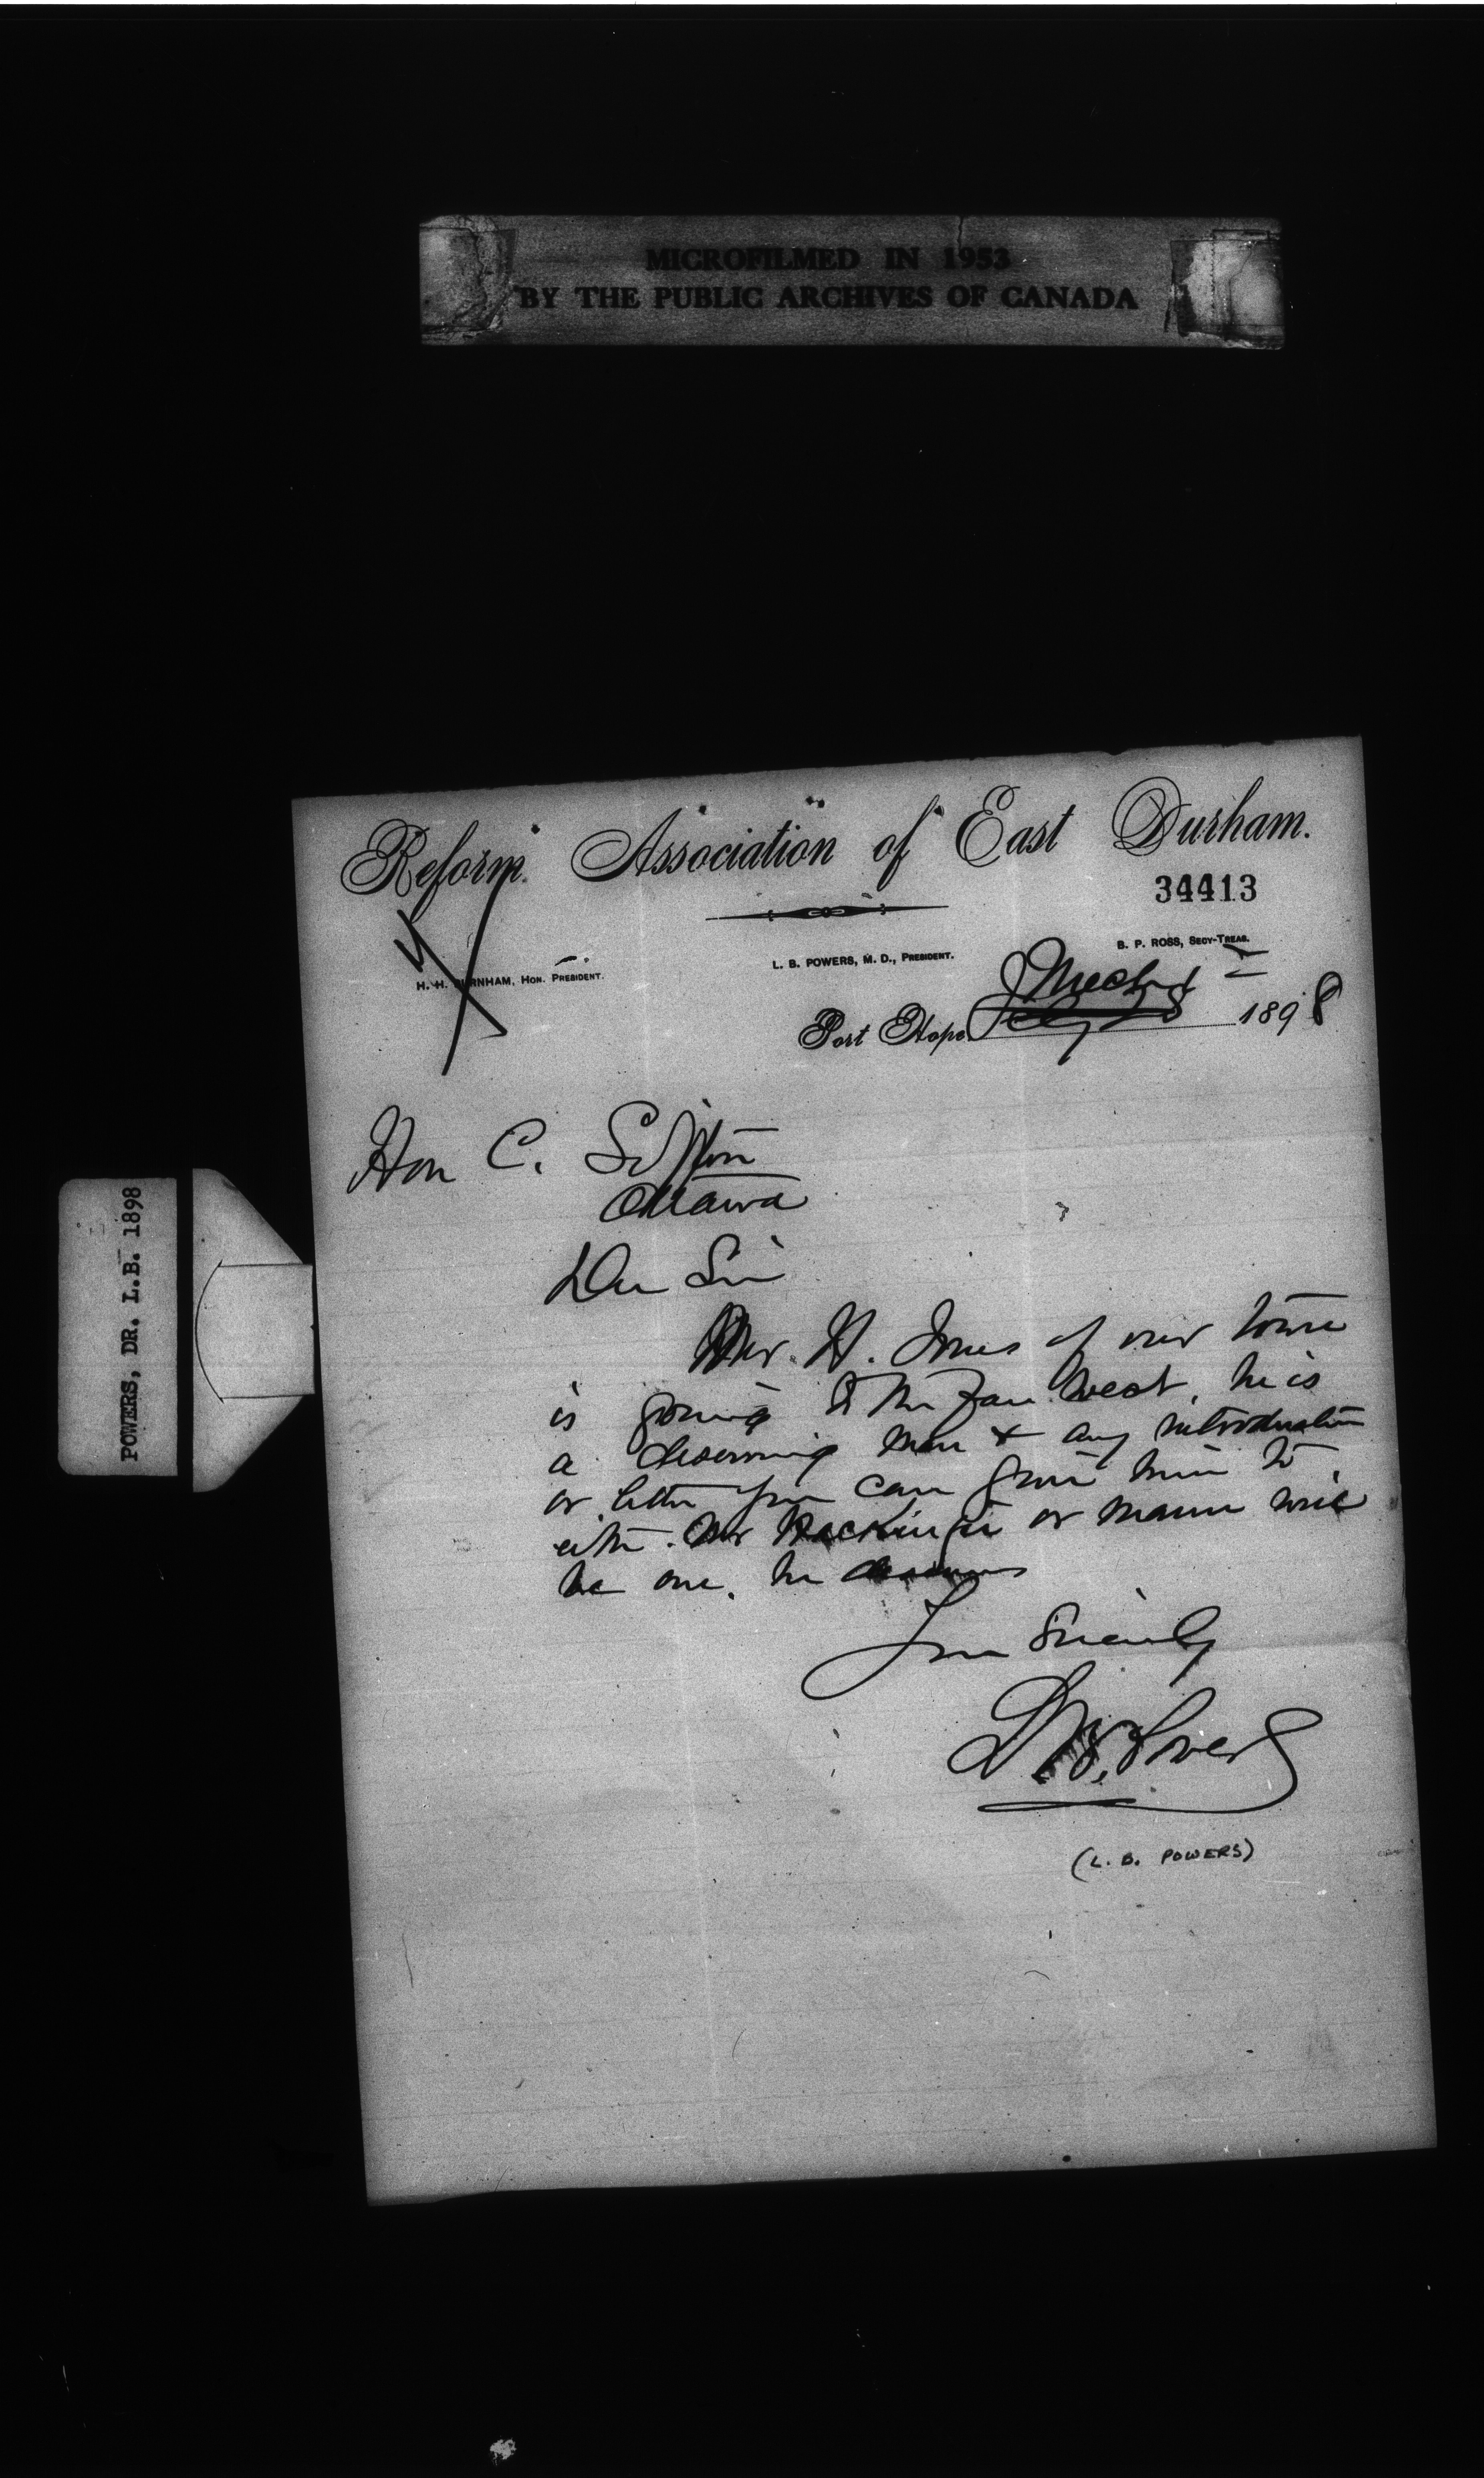 MICROFILMED IN 1953
BY THE PUBLIC ARCHIVES OF CANADA
POWERS, DR. L.B. 1898
Reform Association of East Durham.
34413
H. H. BURNHAM, HON. PRESIDENT.
L. B. POWERS, M. D., PRESIDENT.
B. P. ROSS, SECY-TREAS.
Port Hope 1898
Hon C. Sifton
Ottawa
Dear Sir
Mr. H. Jones of our town
is going to the far West, he is
a deserving man & any introduction
or letter you can give him to
either Mr or Mann will
be one, he deserves
Your Sincerely
L B. Powers
(L. B. POWERS)